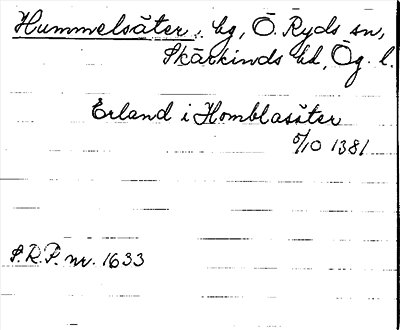 Hummelsäter, bg, Ö. Ryds sn,
Skärkinds hd, Ög. l.
Erland i Homblasäter
6/10 1381
S.R.P. nr. 1633